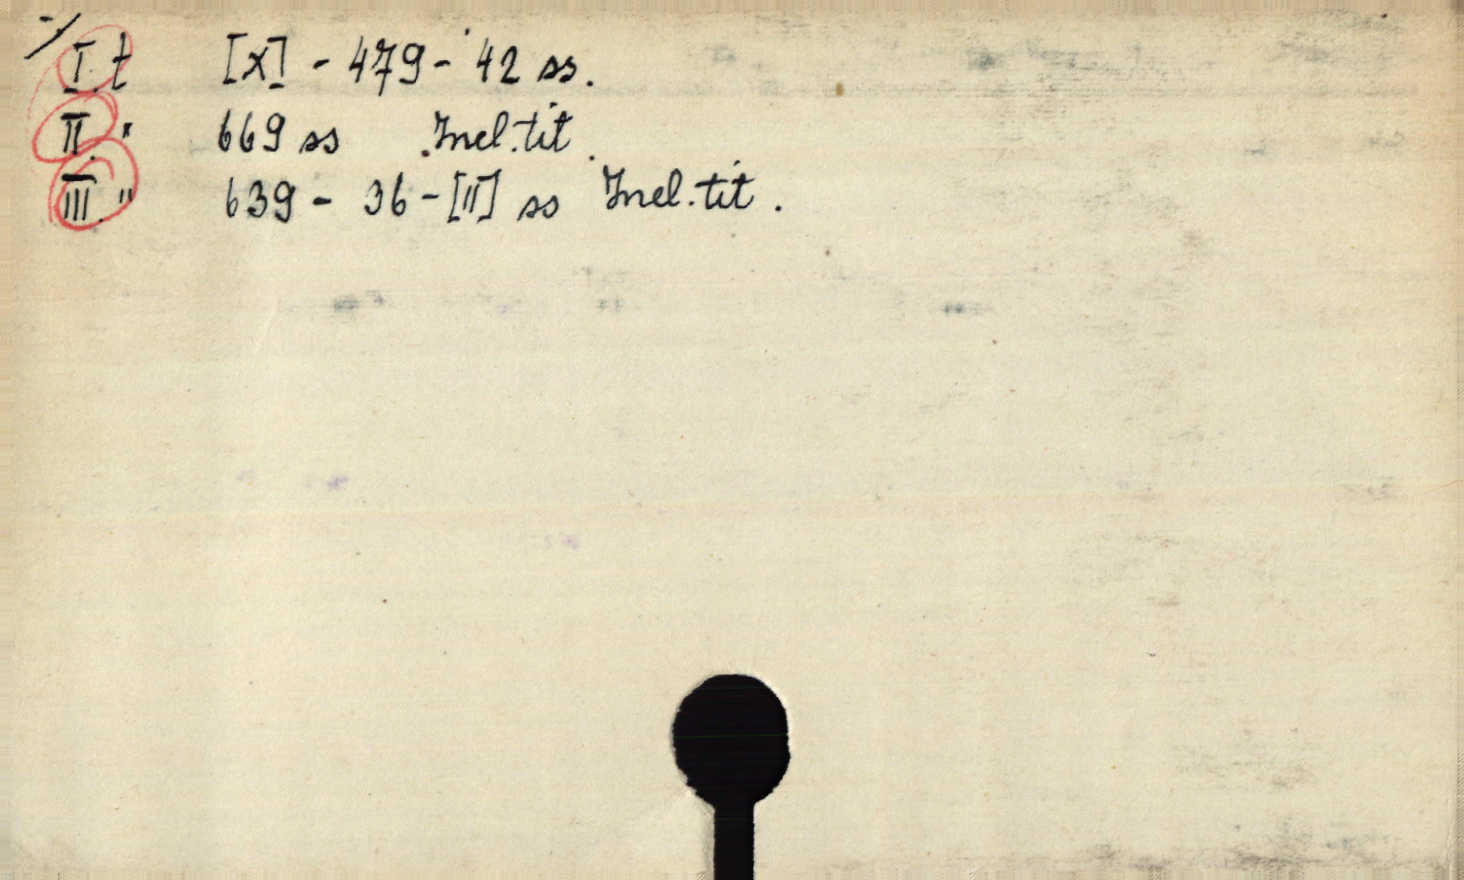 I. t [X] - 479 - 42 ss.
II. " 669 ss Inel. tit.
III. " 639 - 36 - [II] ss Inel. tit.